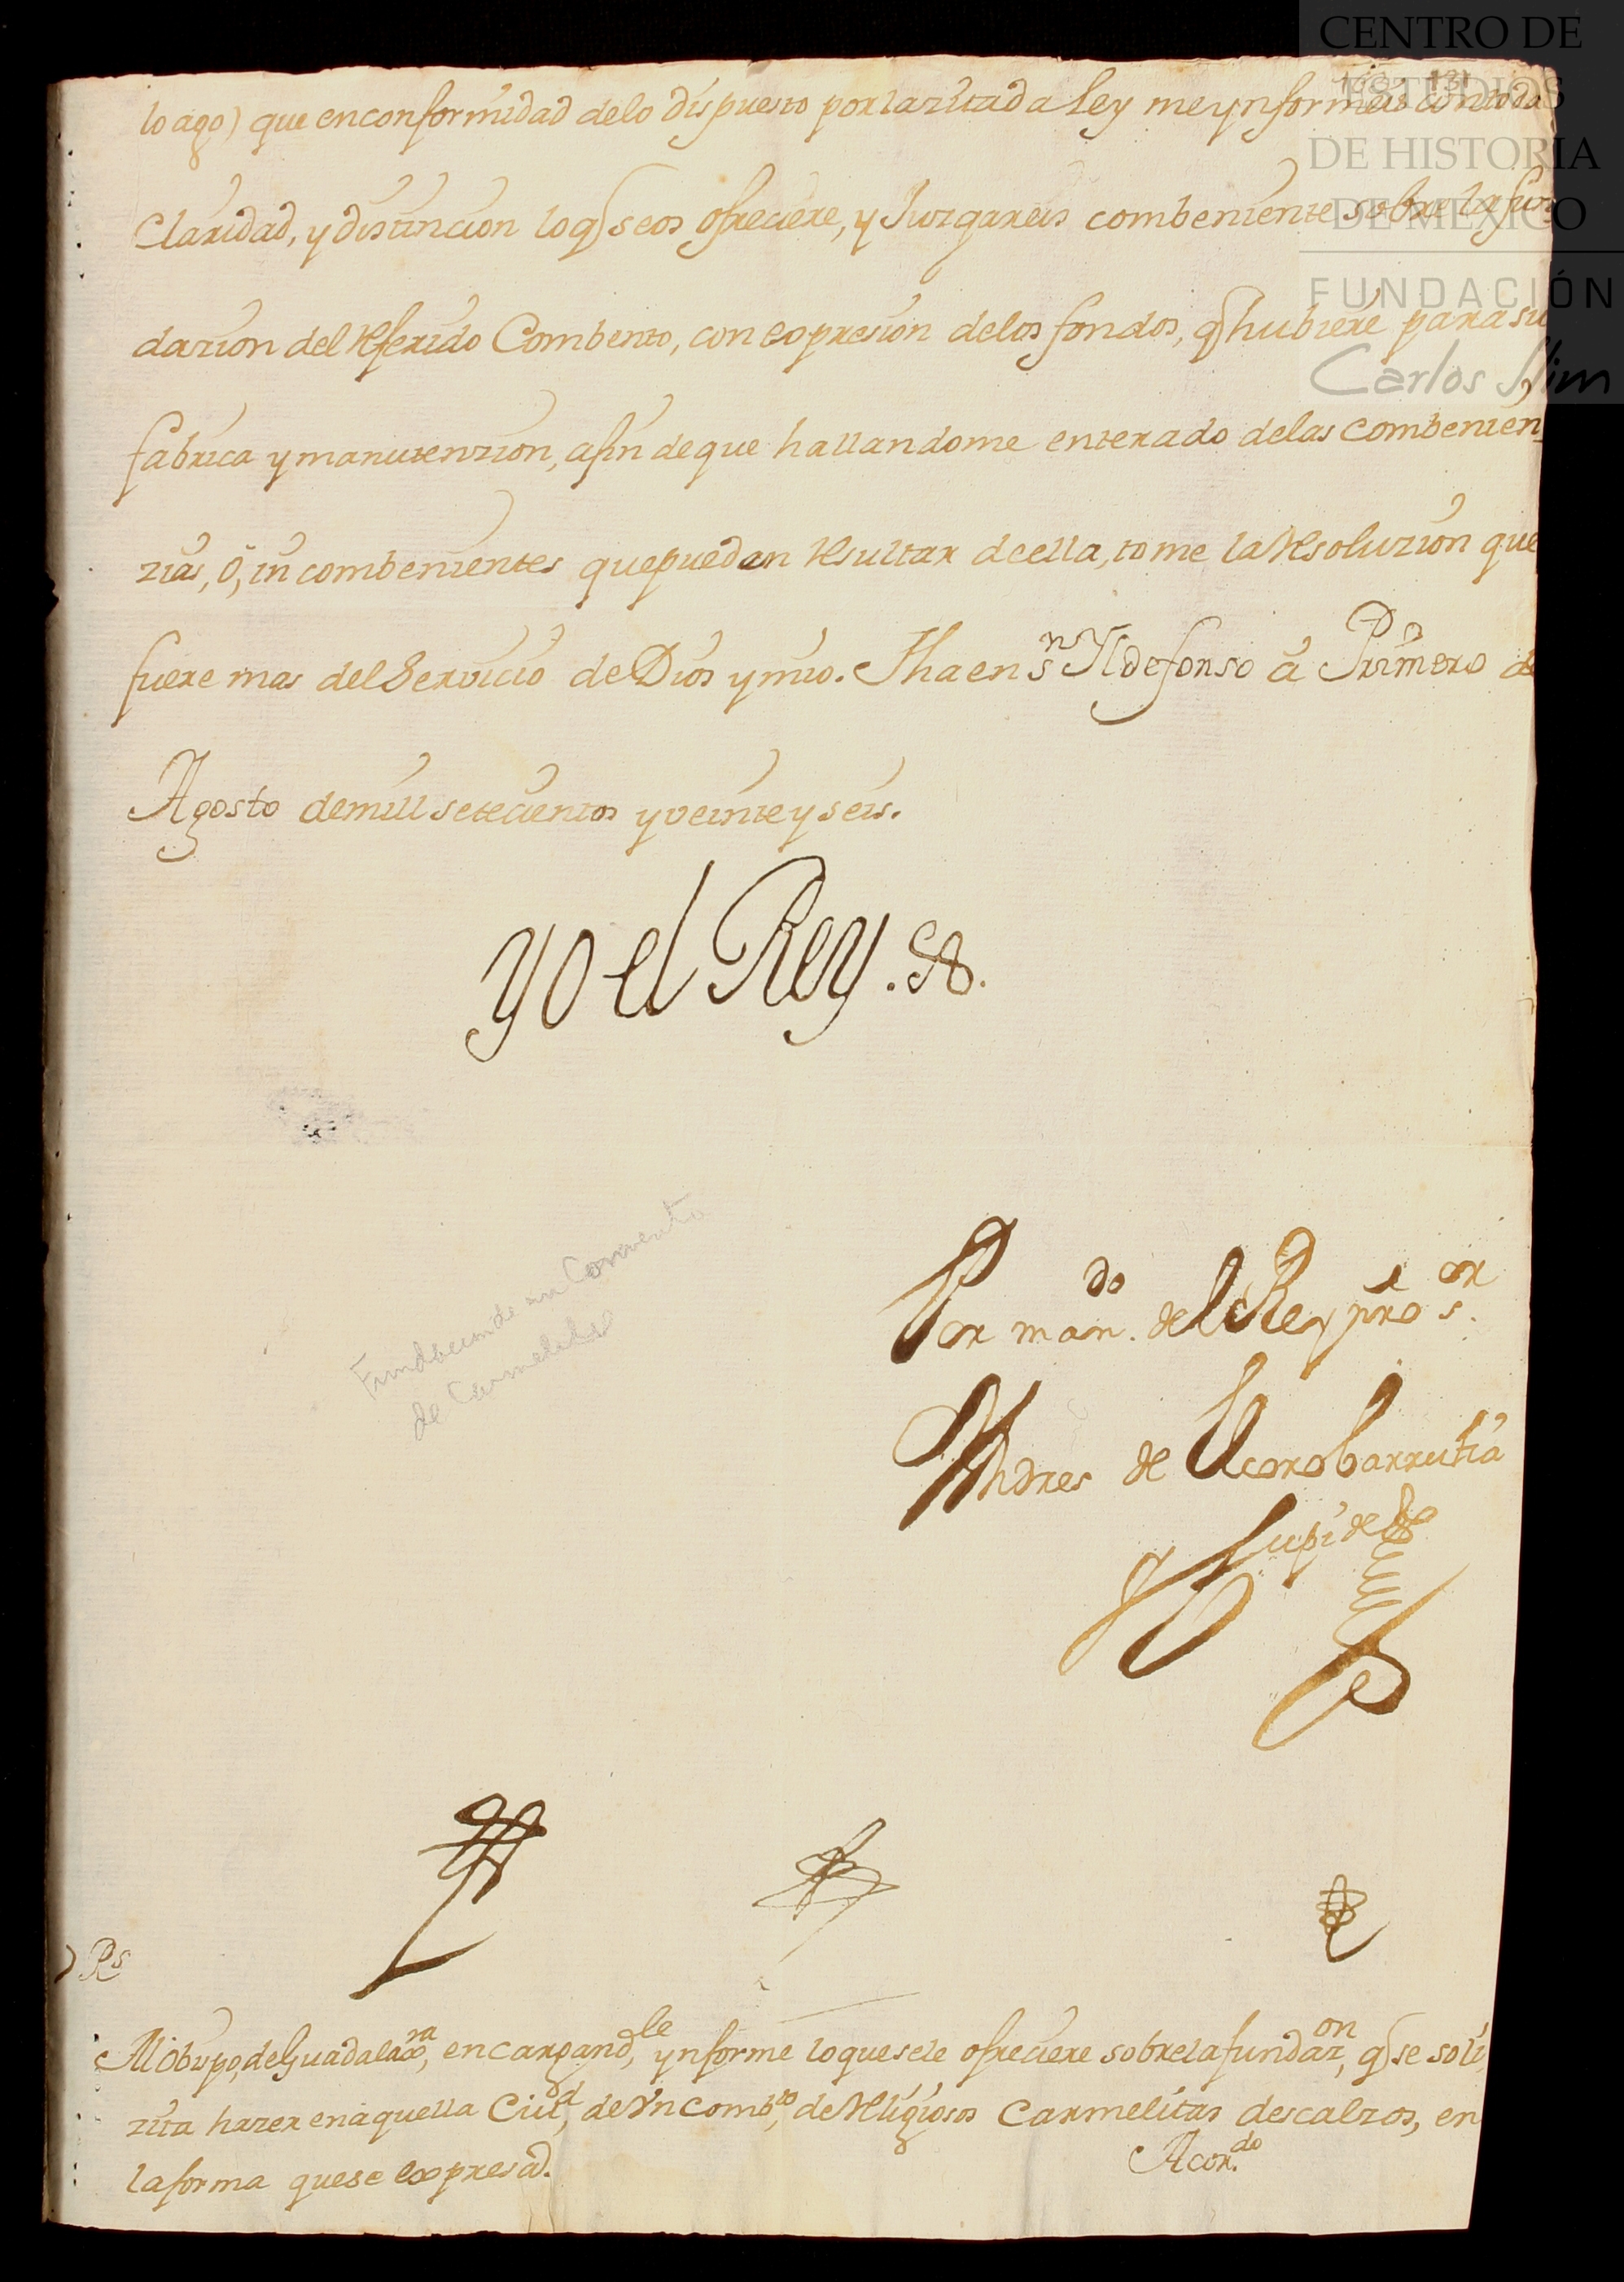 CENTRO DE
ESTUDIOS
DE HISTORIA
DE MÉXICO
FUNDACIÓN
Carlos Slim
131
lo ago) que en conformidad de lo dispuesto por la zitada Ley me ynformeis con toda
Claridad, y distincion lo q̃ se os ofreciere, y Juzgareis combeniente sobre la fun
dazion del Referido Combento, con expresion de los fondos, q̃ hubiere para su
fabrica y manutenzion, a fin de que hallandome enterado de las combenien
zias, ó, in combenientes que puedan Resultar de ella, tome la Resoluzion que
fuere mas del Servicio de Dios y mio. Fha en sⁿ Yldefonso á Primero de
Agosto de mill setecientos y veinte y seis.
Yo el Rey.
Fundacion de un Convento
de Carmelitas
Por man.ᵈᵒ del Rey nrõ s.ᵒʳ
Andres de Elcorobarrutia
y Zupide
Rˢ
Al Obispo, de Guadalaxᵃʳᵃ, encargandˡᵉ, ynforme lo que se le ofreciere sobre la fundazᵒⁿ, q̃ se soli,
zita hazer en aquella Ciuᵈ, de Vn Combᵗᵒ, de Religiosos Carmelitas descalzos, en
la forma que se expresa.
Acor.ᵈᵒ